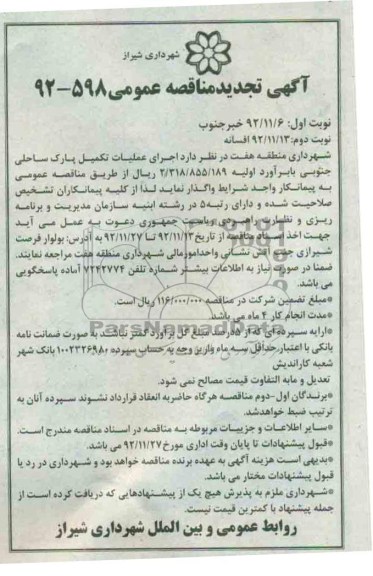 شهرداری شیراز
آگهی تجدیدمناقصه عمومی ۵۹۸-۹۲
نوبت اول: ۹۲/۱۱/۶ خبرجنوب
نوبت دوم: ۹۲/۱۱/۱۳ افسانه
شهرداری منطقه هفت در نظر دارد اجرای عملیات تکمیل پارک ساحلی
جنوبی بابرآورد اولیه ۲/۳۱۸/۸۵۵/۱۸۹ ریال از طریق مناقصه عمومی
به پیمانکار واجد شرایط واگذار نماید لذا از کلیه پیمانکاران تشخیص
صلاحیت شده و دارای رتبه۵ در رشته ابنیه سازمان مدیریت و برنامه
ریزی و نظارت راهبردی ریاست جمهوری دعوت به عمل می آید
جهت اخذ اسناد مناقصه از تاریخ ۹۲/۱۱/۱۳ تا ۹۲/۱۱/۲۷ به آدرس: بولوار فرصت
شیرازی جنب آتش نشانی واحدامورمالی شهرداری منطقه هفت مراجعه نمایند.
ضمنا در صورت نیاز به اطلاعات بیشتر شماره تلفن ۷۲۴۲۷۷۴ آماده پاسخگویی
می باشد.
*مبلغ تضمین شرکت در مناقصه ۱۱۶/۰۰۰/۰۰۰ ریال است.
*مدت انجام کار ۴ ماه می باشد.
*ارایه سپرده ای که از ۵درصد مبلغ کل برآورد کمتر نباشد به صورت ضمانت نامه
بانکی با اعتبار حداقل سه ماه واریز وجه به حساب سپرده ۱۰۰۲۳۲۶۹۸۰ بانک شهر
شعبه کاراندیش
تعدیل و مابه التفاوت قیمت مصالح نمی شود.
*برندگان اول-دوم مناقصه هرگاه حاضربه انعقاد قرارداد نشوند سپرده آنان به
ترتیب ضبط خواهدشد.
*سایر اطلاعات و جزییات مربوطه به مناقصه در اسناد مناقصه مندرج است.
*قبول پیشنهادات تا پایان وقت اداری مورخ ۹۲/۱۱/۲۷ می باشد.
*بدیهی است هزینه آگهی به عهده برنده مناقصه خواهد بود و شهرداری در رد یا
قبول پیشنهادات مختار می باشد.
*شهرداری ملزم به پذیرش هیچ یک از پیشنهادهایی که دریافت کرده است از
جمله پیشنهاد با کمترین قیمت نیست.
روابط عمومی و بین الملل شهرداری شیراز
ParsNamadData